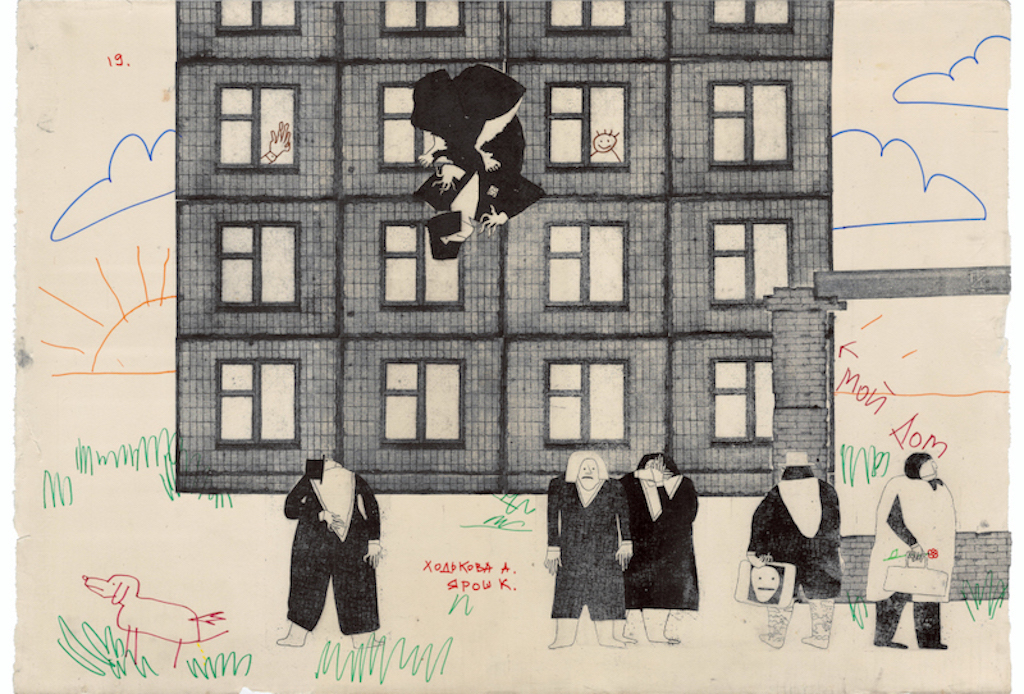 19.
МОЙ
ДОМ
ХОДЬКОВА Д.
ЯРОШ К.